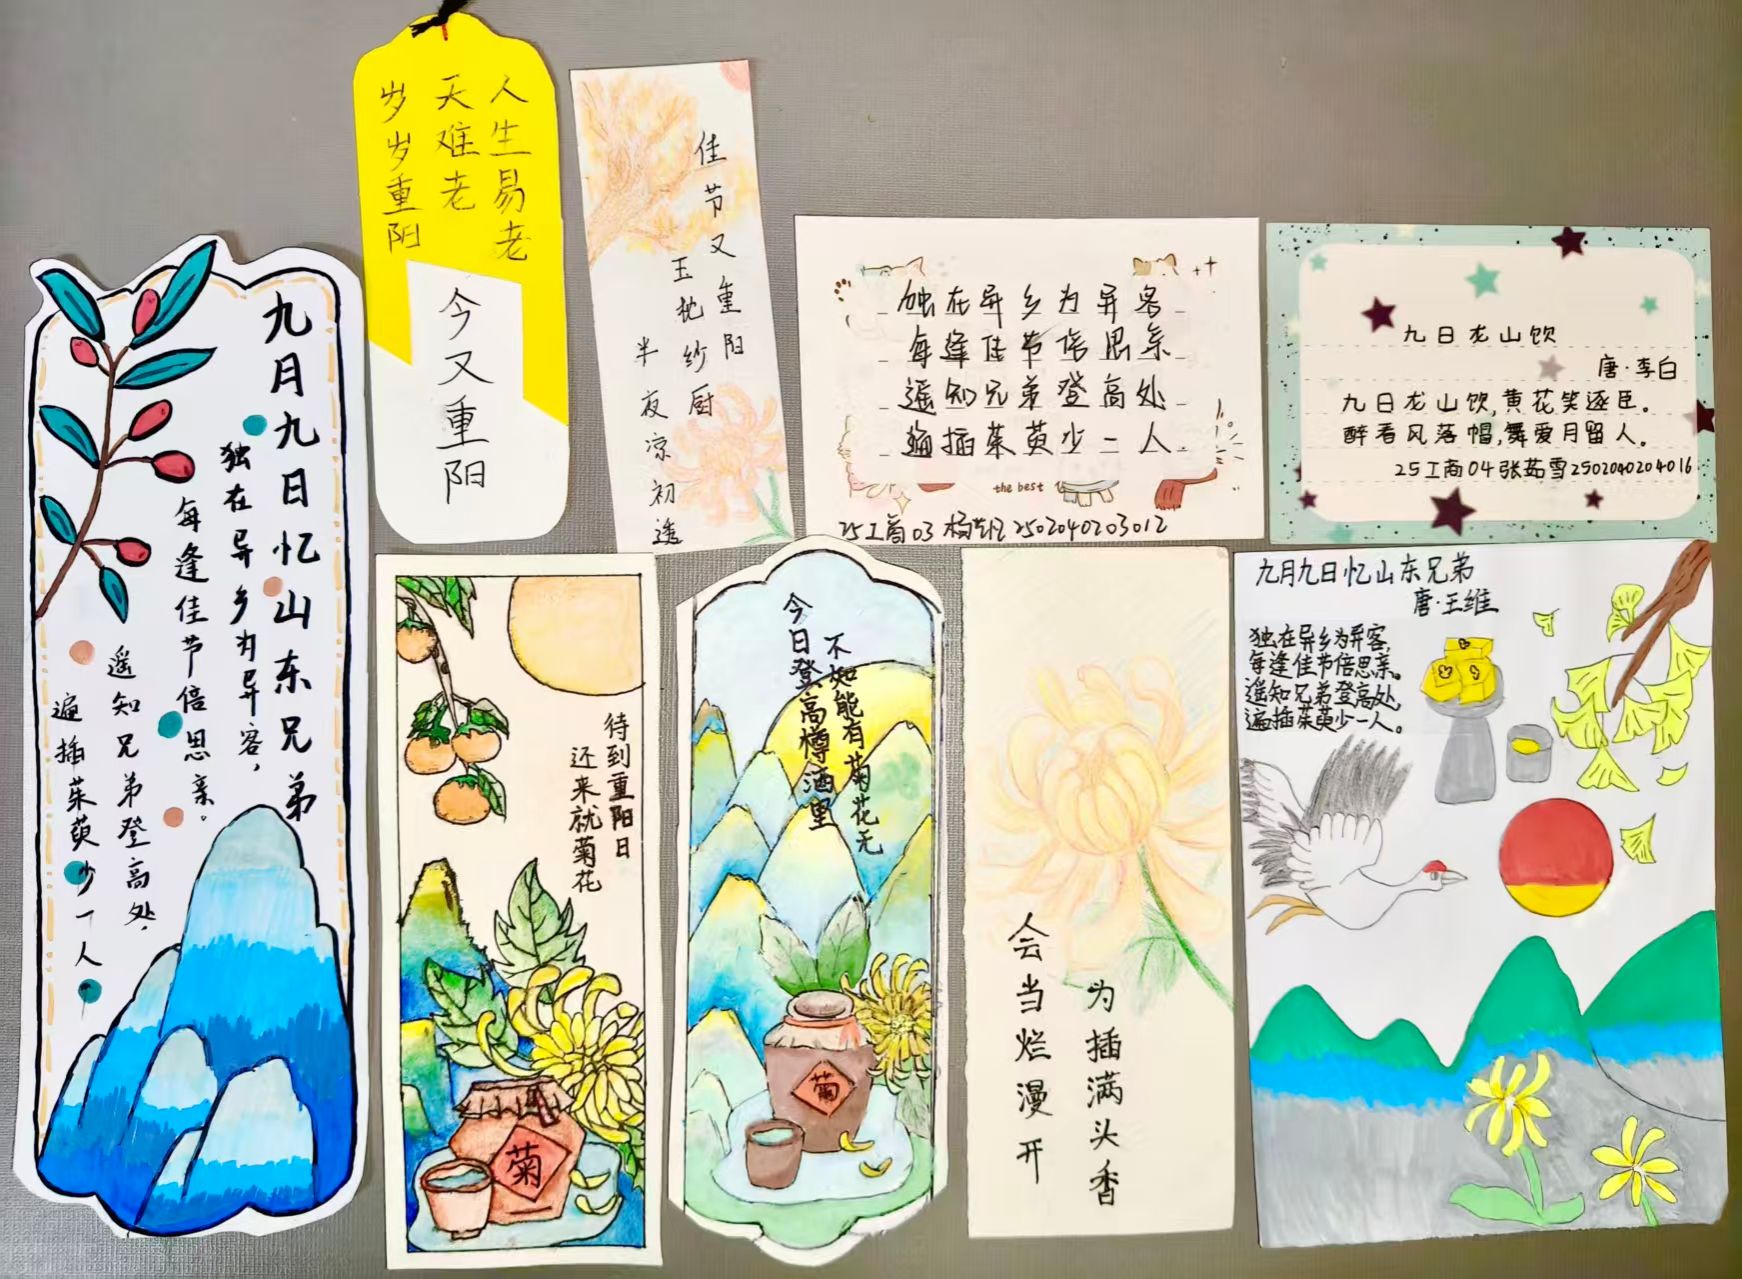 九月九日忆山东兄弟
独在异乡为异客，
每逢佳节倍思亲。
遥知兄弟登高处，
遍插茱萸少一人
人生易老
天难老
岁岁重阳
今又重阳
佳节又重阳
玉枕纱厨
半夜凉初透
独在异乡为异客
每逢佳节倍思亲
遥知兄弟登高处
遍插茱萸少一人
the best
25工商03 杨 2502040203012
九日龙山饮
唐·李白
九日龙山饮,黄花笑逐臣。
醉看风落帽,舞爱月留人。
25工商04张茹雪2502040204016
待到重阳日
还来就菊花
菊
不知能有菊花无
今日登高樽酒里
菊
为插满头香
会当烂漫开
九月九日忆山东兄弟
唐·王维
独在异乡为异客,
每逢佳节倍思亲。
遥知兄弟登高处,
遍插茱萸少一人。